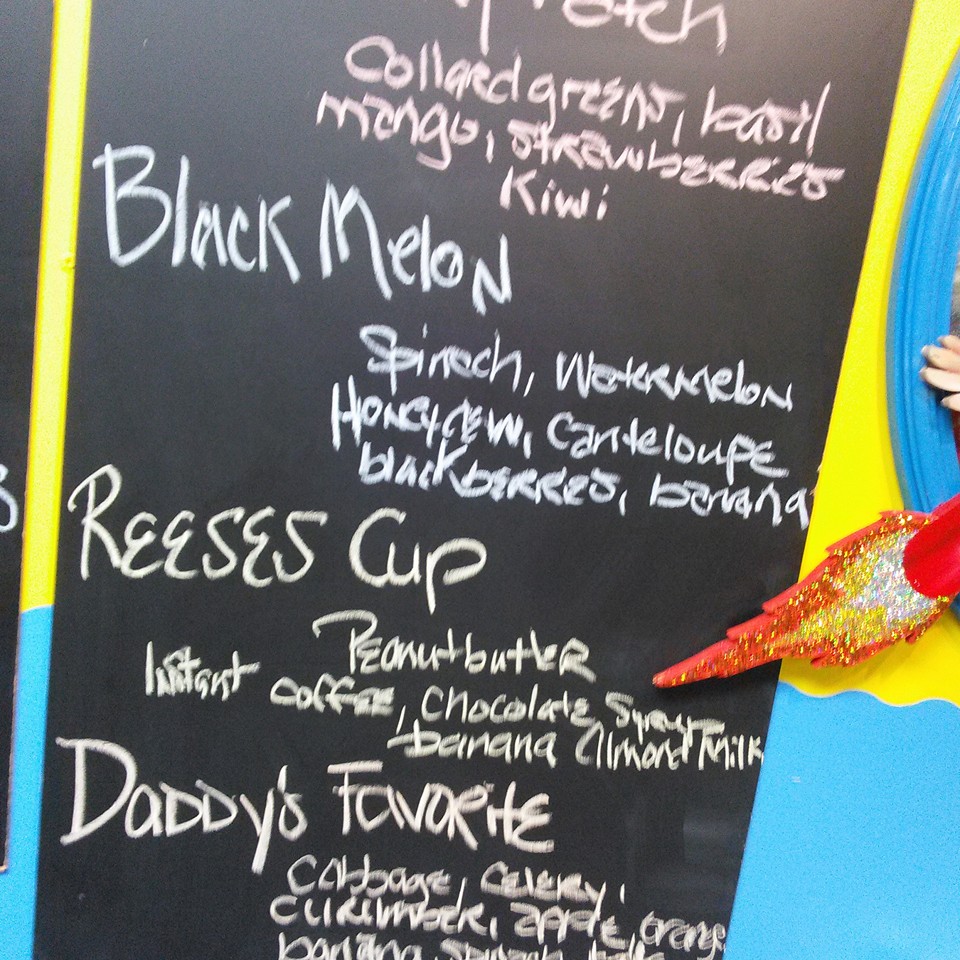 Patch
Collard greens, basil
mango, strawberries
Kiwi
Black Melon
Spinach, Watermelon
Honeydew, Canteloupe
blackberries, banana
REESES Cup
Peanutbutter
Instant coffee, Chocolate Syrup
banana Almond Milk
Daddy's Favorite
Cabbage, Celery,
cucumber, apple, orange
banana, spinach,